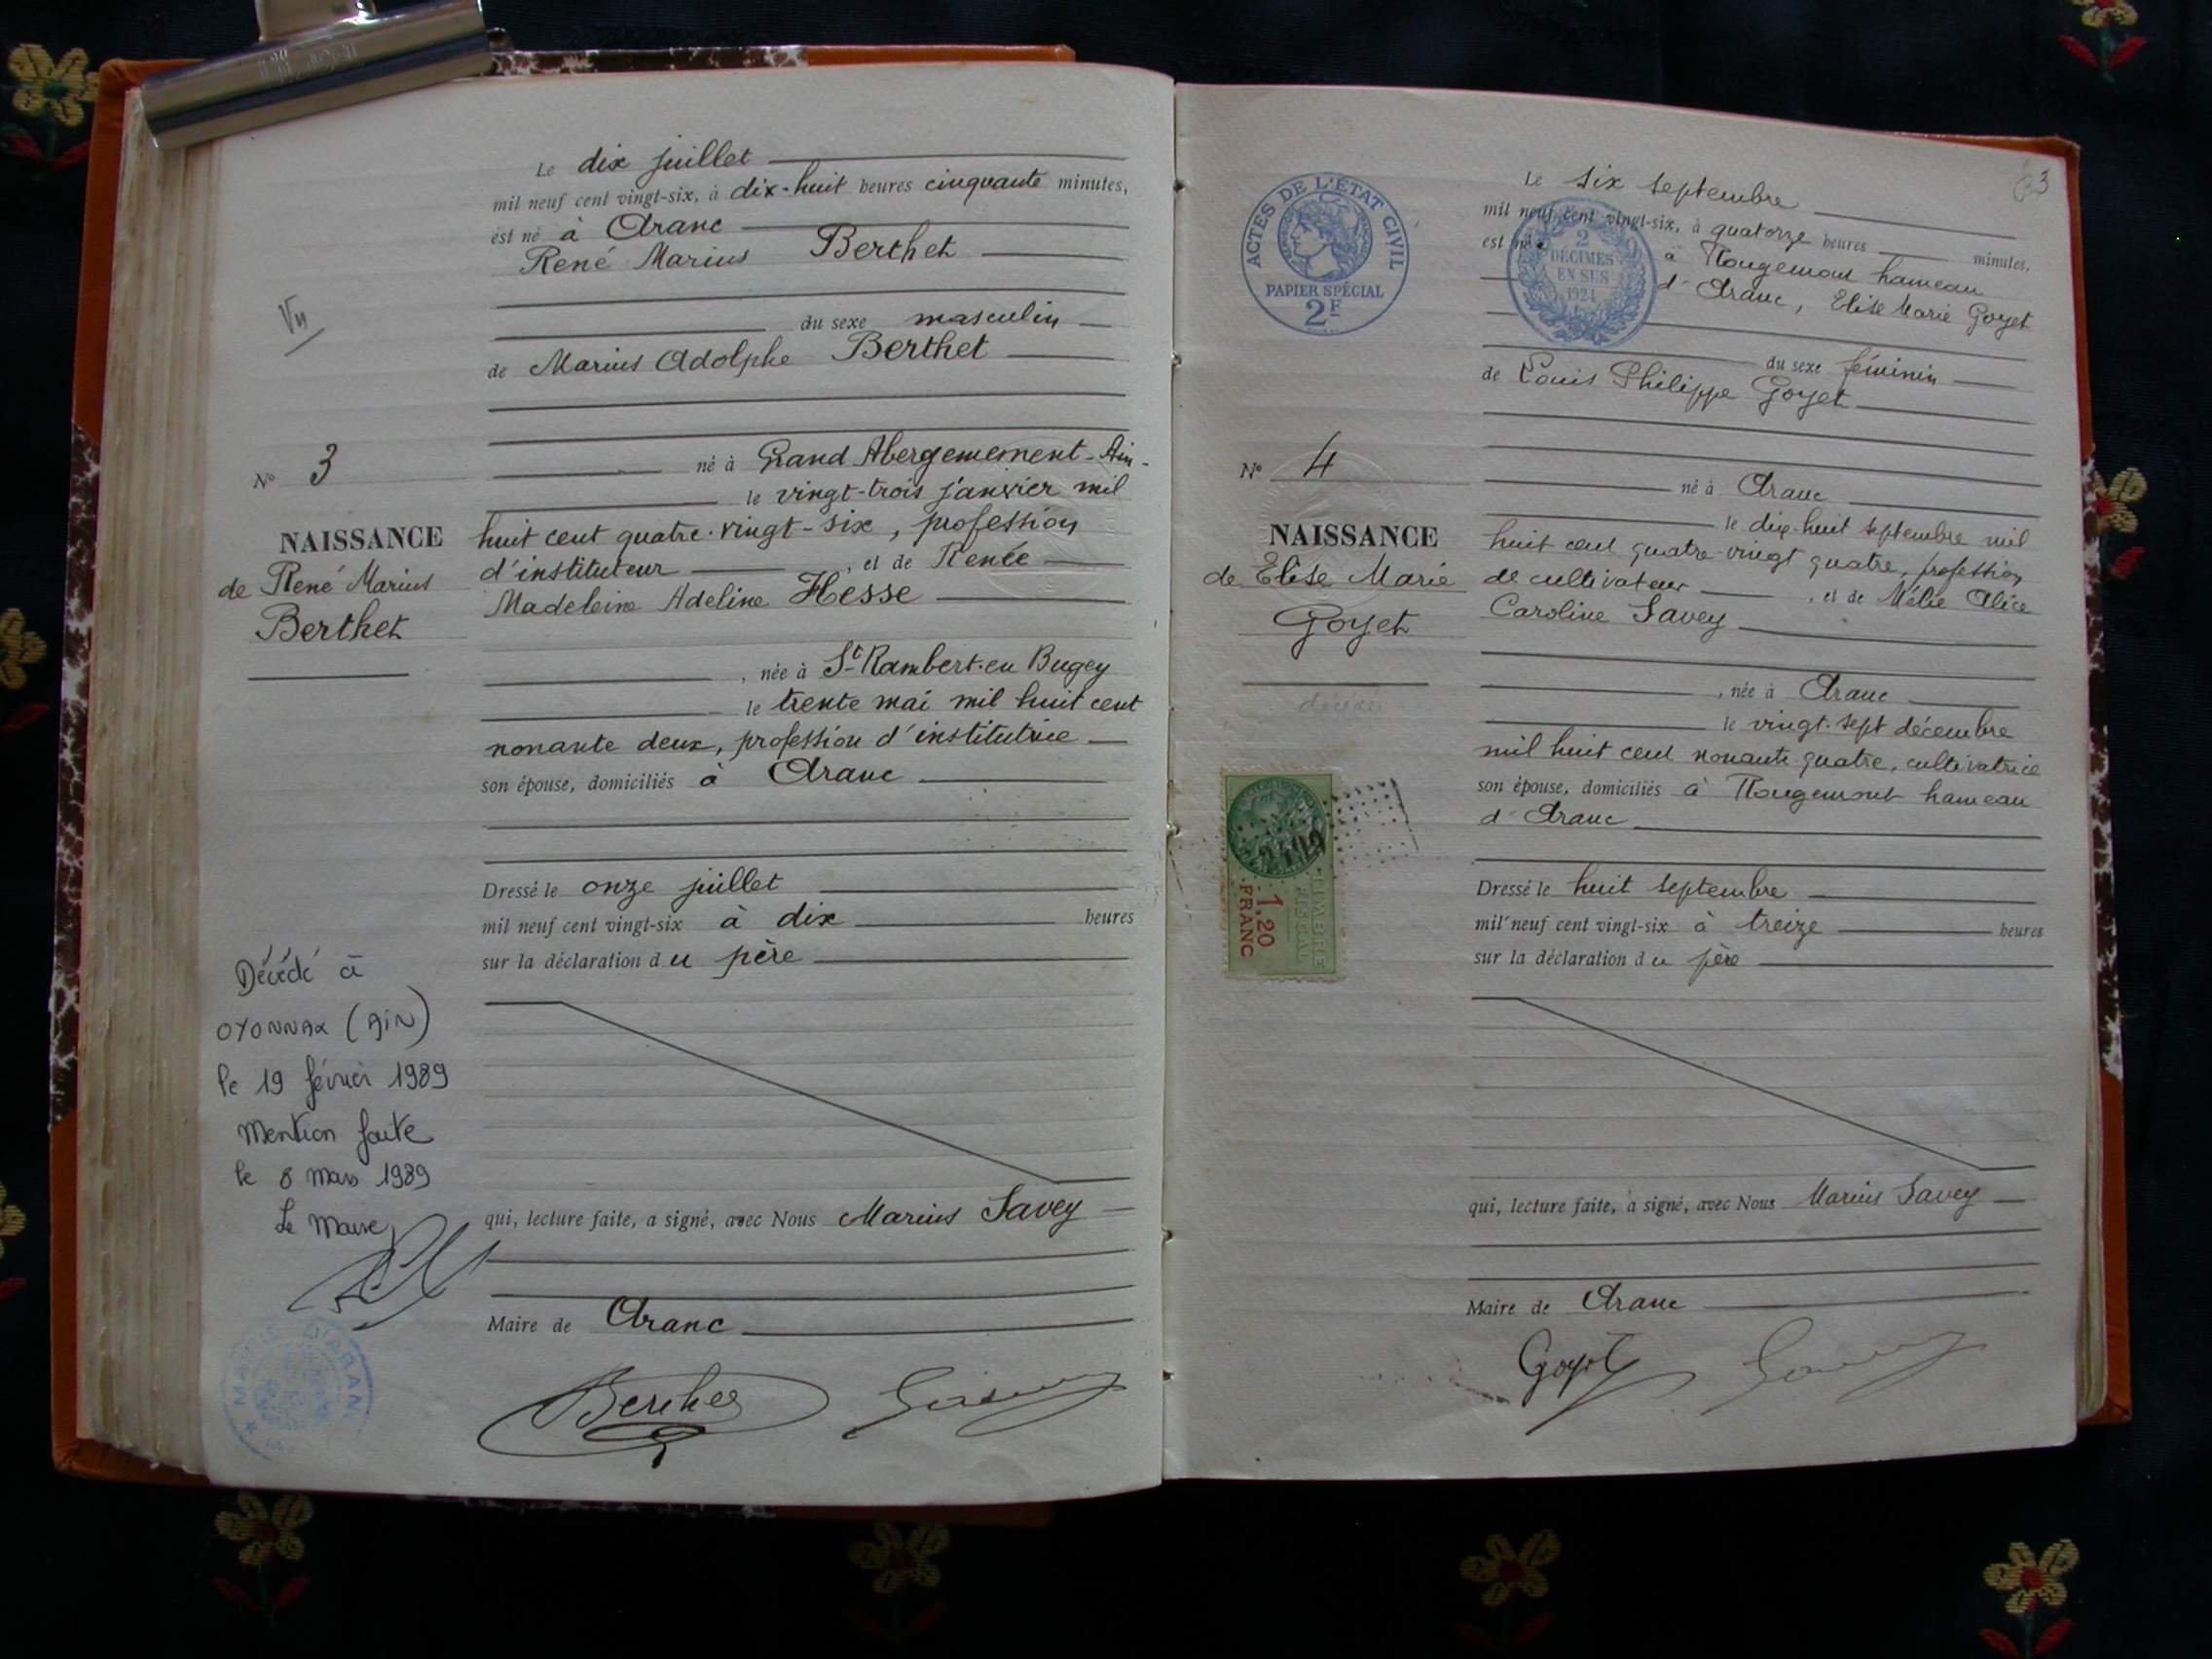 Le dix juillet
mil neuf cent vingt-six, à dix-huit heures cinquante minutes,
est né à Aranc
René Marius Berthet
du sexe masculin
de Marius Adolphe Berthet
né à Grand Abergemement-Ain-
le vingt-trois janvier mil
huit cent quatre-vingt-six, profession
d'instituteur, et de Renée
Madeleine Adeline Hesse
, née à St Rambert-en Bugey
le trente mai mil huit cent
nonante deux, profession d'institutrice
son épouse, domiciliés à Aranc
Dressé le onze juillet
mil neuf cent vingt-six à dix heures
sur la déclaration du père
qui, lecture faite, a signé, avec Nous Marius Savey
Maire de Aranc
Berthet
Vu
No 3
NAISSANCE
de René Marius
Berthet
Décédé à
OYONNAX (AIN)
le 19 février 1989
Mention faite
le 8 mars 1989
Le Maire
D'ARANC
33
ACTES DE L'ÉTAT CIVIL
PAPIER SPÉCIAL
2F
2
DÉCIMES
EN SUS
1924
Le six septembre
mil neuf cent vingt-six, à quatorze heures minutes,
est né à Rougemont hameau
d'Aranc, Elise Marie Goyet
du sexe féminin
de Louis Philippe Goyet
né à Aranc
le dix-huit septembre mil
huit cent quatre-vingt quatre, profession
de cultivateur, et de Mélie Alice
Caroline Savey
, née à Aranc
le vingt-sept décembre
mil huit cent nonante-quatre, cultivatrice
son épouse, domiciliés à Rougemont hameau
d'Aranc
Dressé le huit septembre
mil neuf cent vingt-six à treize heures
sur la déclaration du père
qui, lecture faite, a signé, avec Nous Marius Savey
Maire de Aranc
Goyet
No 4
NAISSANCE
de Elise Marie
Goyet
décédée
TIMBRE
FISCAL
1,20
FRANC